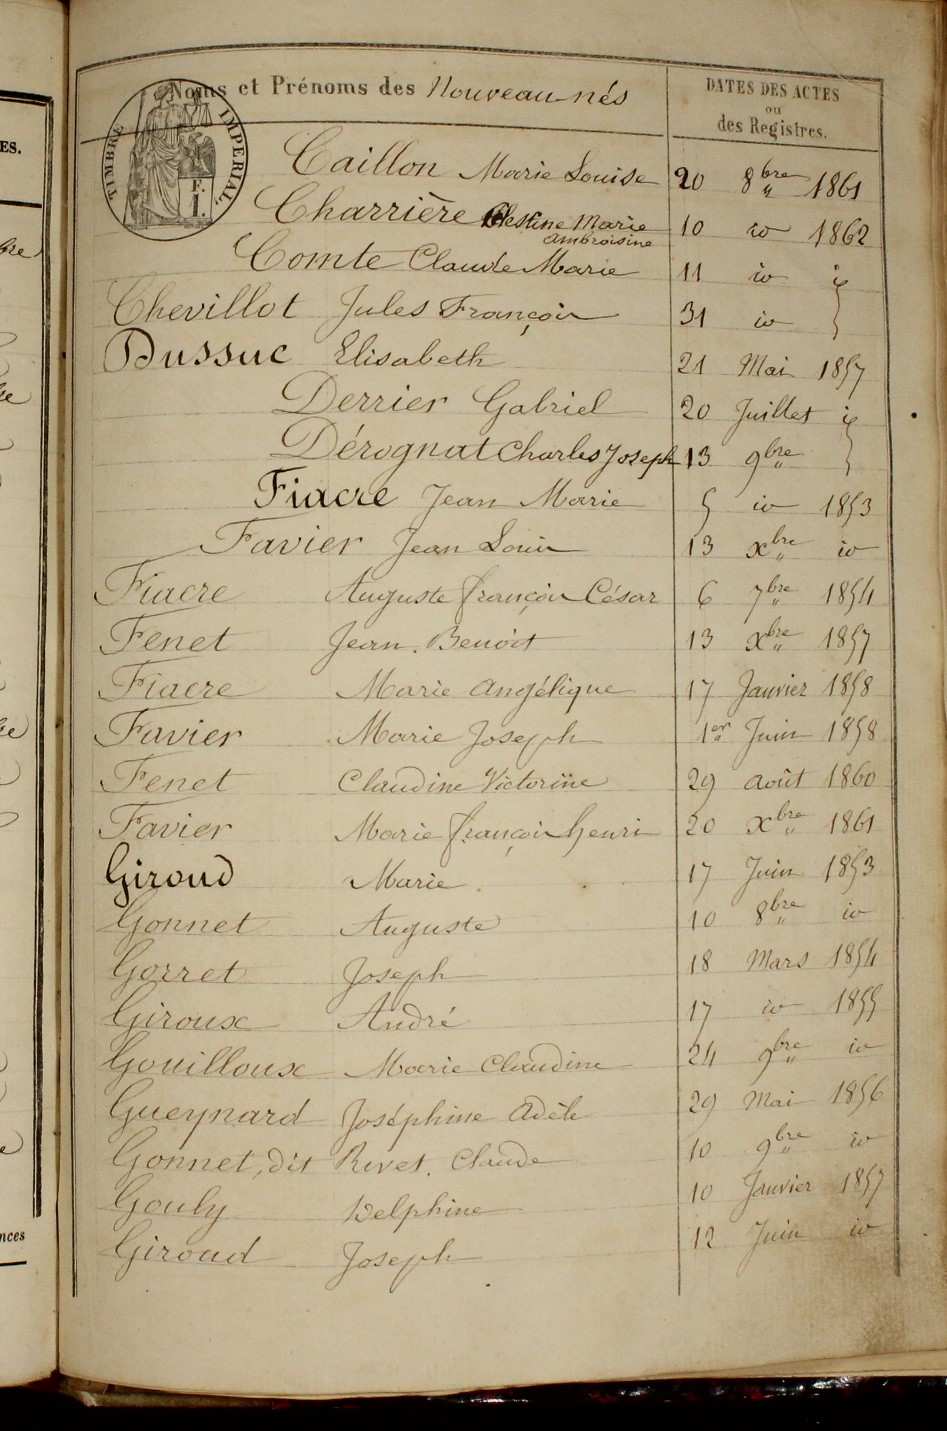 Noms et Prénoms des Nouveau-nés
DATES DES ACTES
ou
des Registres.
TIMBRE IMPERIAL
1 F.
Caillon Marie Louise 20 8bre 1861
Charrière Célestine Marie 10 id 1862
Ambroisine
Comte Claude Marie 11 id id
Chevillot Jules François 31 id
Dussuc Elisabeth 21 Mai 1857
Derrier Gabriel 20 Juillet id
Dérognat Charles Joseph 13 9bre
Fiacre Jean Marie 5 id 1853
Favier Jean Louis 13 xbre id
Fiacre Auguste françois César 6 7bre 1854
Fenet Jean Benoit 13 xbre 1857
Fiacre Marie Angélique 17 Janvier 1858
Favier Marie Joseph 1er Juin 1858
Fenet Claudine Victorine 29 août 1860
Favier Marie françois henri 20 xbre 1861
Giroud Marie 17 Juin 1853
Gonnet Auguste 10 8bre id
Gorret Joseph 18 Mars 1854
Giroux André 17 id 1855
Gouilloux Marie Claudine 24 9bre id
Gueynard Joséphine Adèle 29 Mai 1856
Gonnet, dit Rivet. Claude 10 9bre id
Gouly Delphine 10 Janvier 1857
Giroud Joseph 12 Juin id
ES.
nces